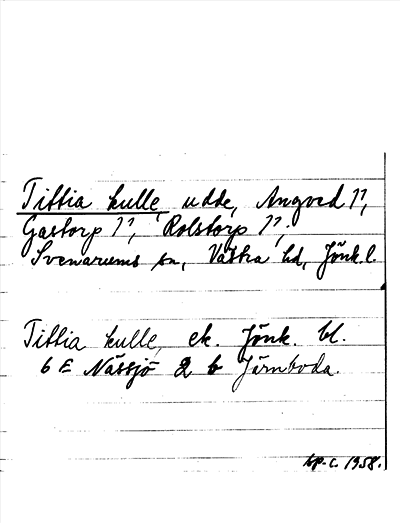 Tittia kulle, udde, Angved 1⁷,
Gastorp 1⁷, Rolstorp 1⁷,
Svenarums sn, Västra hd, Jönk. l.
Tittia kulle, ek. Jönk. bl.
6 E Nässjö 2 b Järnboda.
1958.